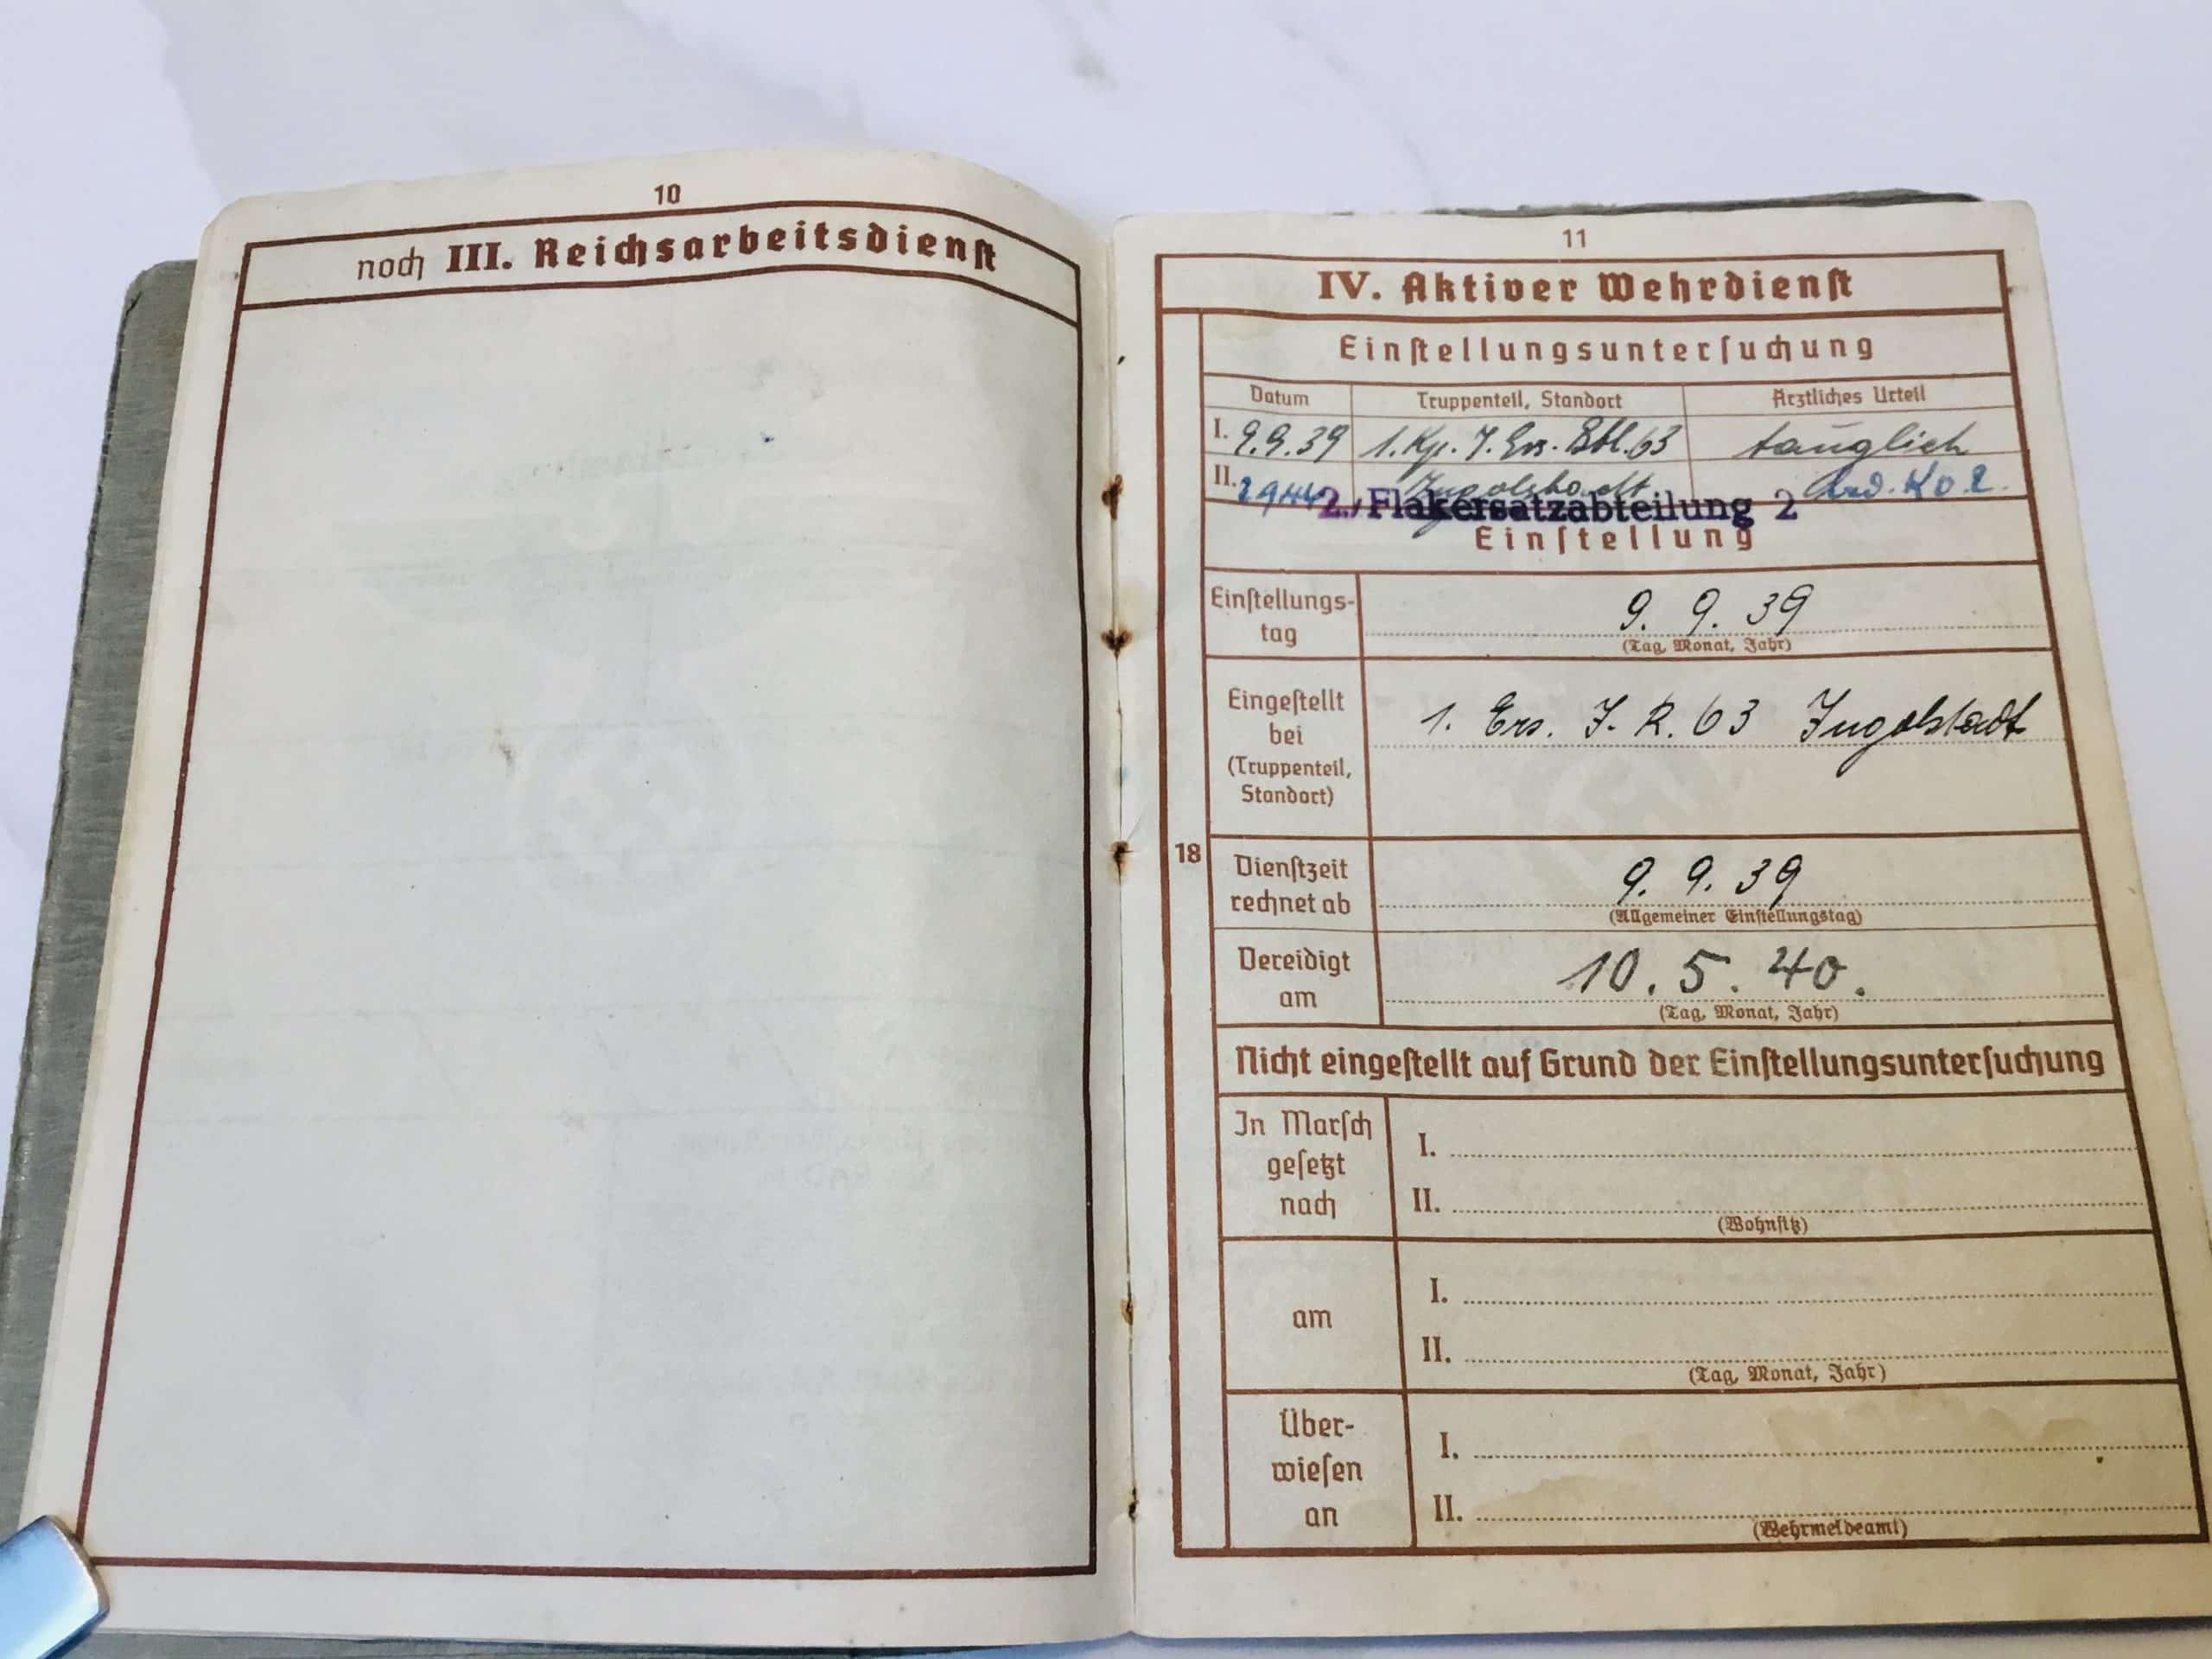 10
noch III. Reichsarbeitsdienst
11
IV. Aktiver Wehrdienst
Einstellungsuntersuchung
Datum Truppenteil, Standort Ärztliches Urteil
I. 9.9.39 1. Kp. J. Ers. Btl. 63 tauglich
II. Ingolstadt
2./Flakersatzabteilung 2
Einstellung
Einstellungs-
tag
9. 9. 39
(Tag, Monat, Jahr)
Eingestellt
bei
(Truppenteil,
Standort)
1. Ers. J. R. 63 Ingolstadt
18
Dienstzeit
rechnet ab
9. 9. 39
(Allgemeiner Einstellungstag)
Vereidigt
am
10. 5. 40.
(Tag, Monat, Jahr)
Nicht eingestellt auf Grund der Einstellungsuntersuchung
In Marsch
gesetzt
nach
I.
II.
(Wohnsitz)
am
I.
II.
(Tag, Monat, Jahr)
Über-
wiesen
an
I.
II.
(Wehrmeldeamt)